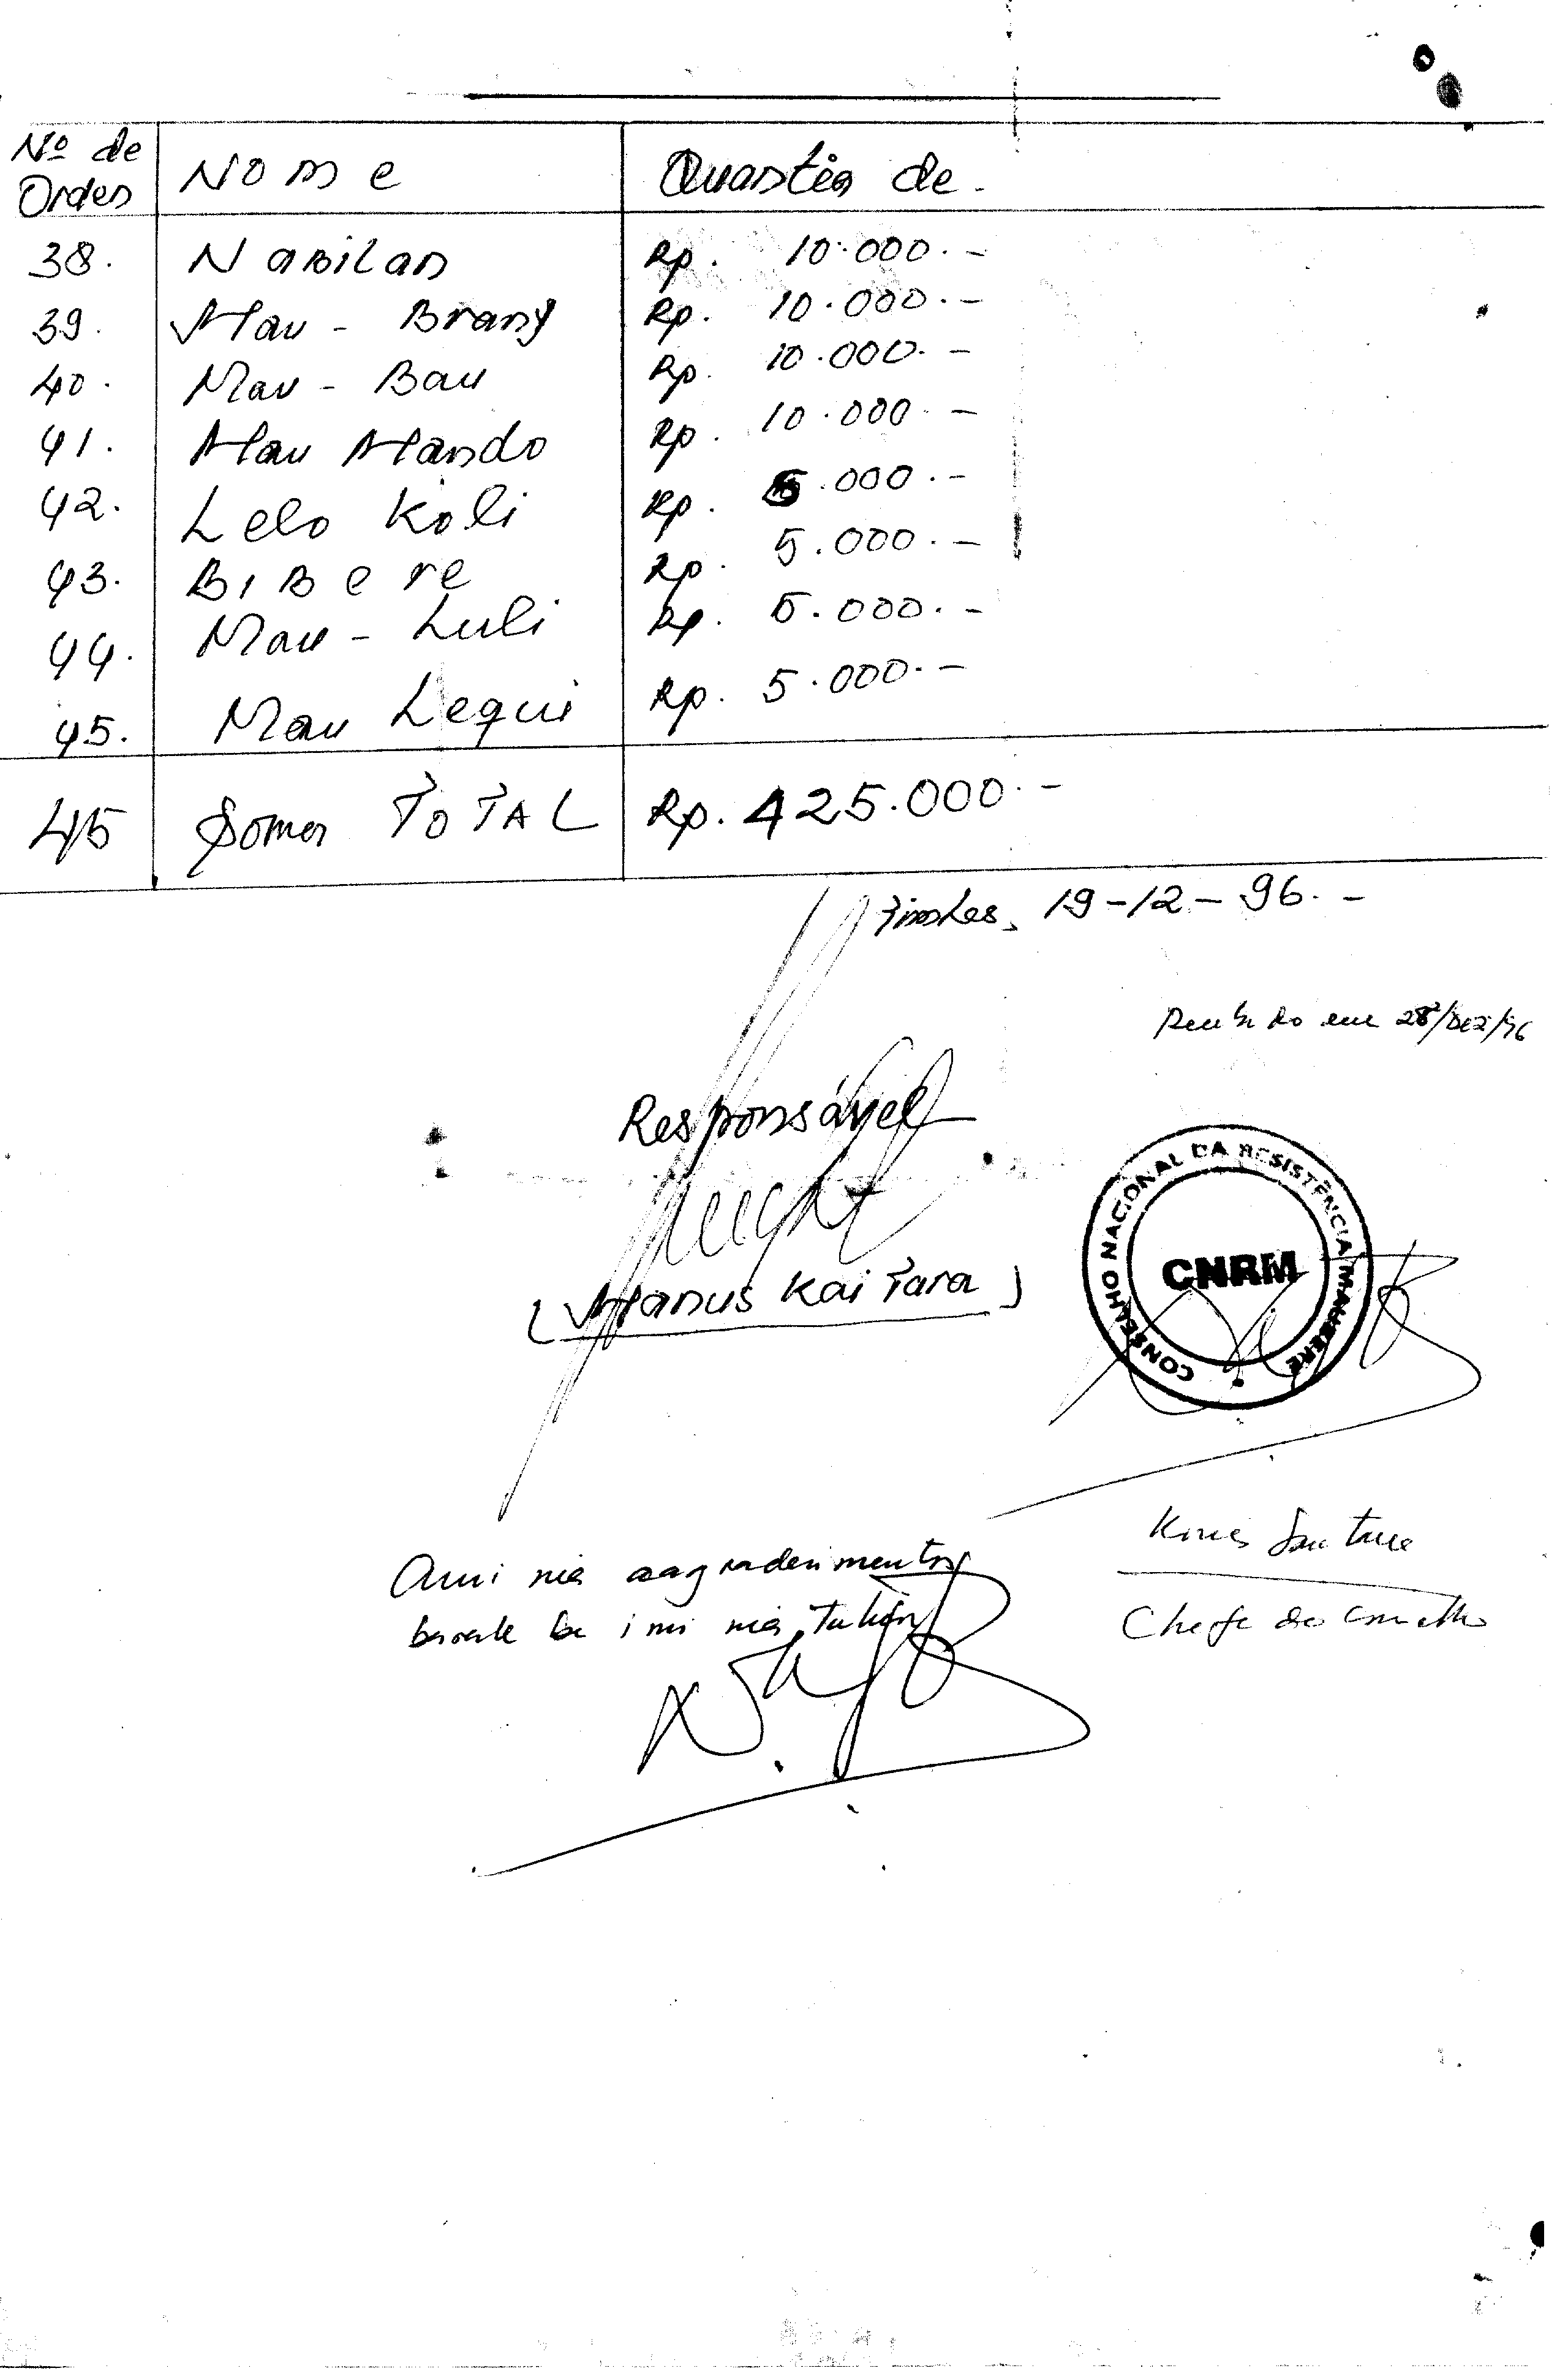 Nº de Orden Nome Quantia de -
38. Nabilan Rp. 10.000.-
39. Mau - Brany Rp. 10.000.-
40. Mau - Bau Rp. 10.000.-
41. Mau Mando Rp. 10.000.-
42. Lelo Koli Rp. 5.000.-
43. BiBere Rp. 5.000.-
44. Mau - Luli Rp. 5.000.-
45. Mau Lequi Rp. 5.000.-
45 Soma TOTAL Rp. 425.000.-
19-12-96.-
Recebido em 28/Dez/96
Responsável
(Manus Kai Tara)
CONSELHO NACIONAL DA RESISTÊNCIA MAUBERE
CNRM
Konis Santana
Chefe do Conselho
Ami nia aagradecimento
barak ba imi nia tulun